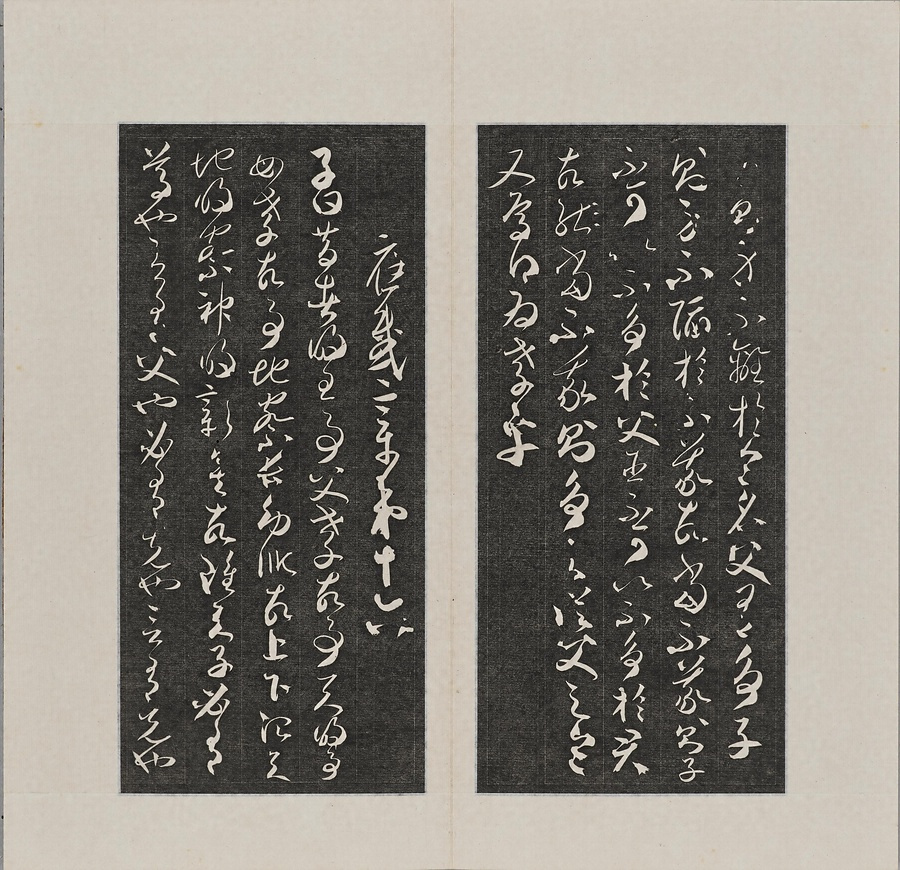 則身不離於令名父有爭子
則身不陷於不義故當不義則子
不可以不爭於父臣不可以不爭於君
故當不義則爭之從父之令
又焉得為孝乎
應感章第十六
子曰昔者明王事父孝故事天明事
母孝故事地察長幼順故上下治天
地明察神明章矣故雖天子必有
尊也言有父也必有先也言有兄也